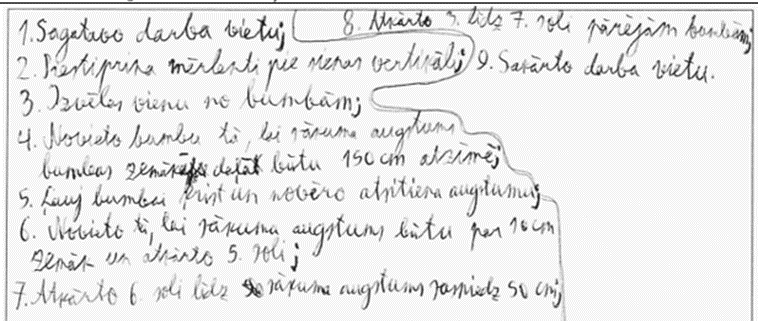 1. Sagatavo darba vietu;
2. Piestiprina mērlenti pie sienas vertikāli;
3. Izvēlas vienu no bumbām;
4. Novieto bumbu tā, lai sākuma augstums
bumbas zemākajā daļā būtu 150 cm atzīmē;
5. Ļauj bumbai krist un novēro atsitiena augstumu;
6. Novieto tā, lai sākuma augstums būtu par 10 cm
zemāk un atkārto 5. soli;
7. Atkārto 6. soli līdz sākuma augstums sasniedz 50 cm;
8. Atkārto 3. līdz 7. soli pārējām bumbām;
9. Sakārto darba vietu.